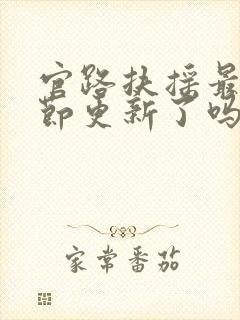 官路扶摇最
节更新了吗
家常番茄